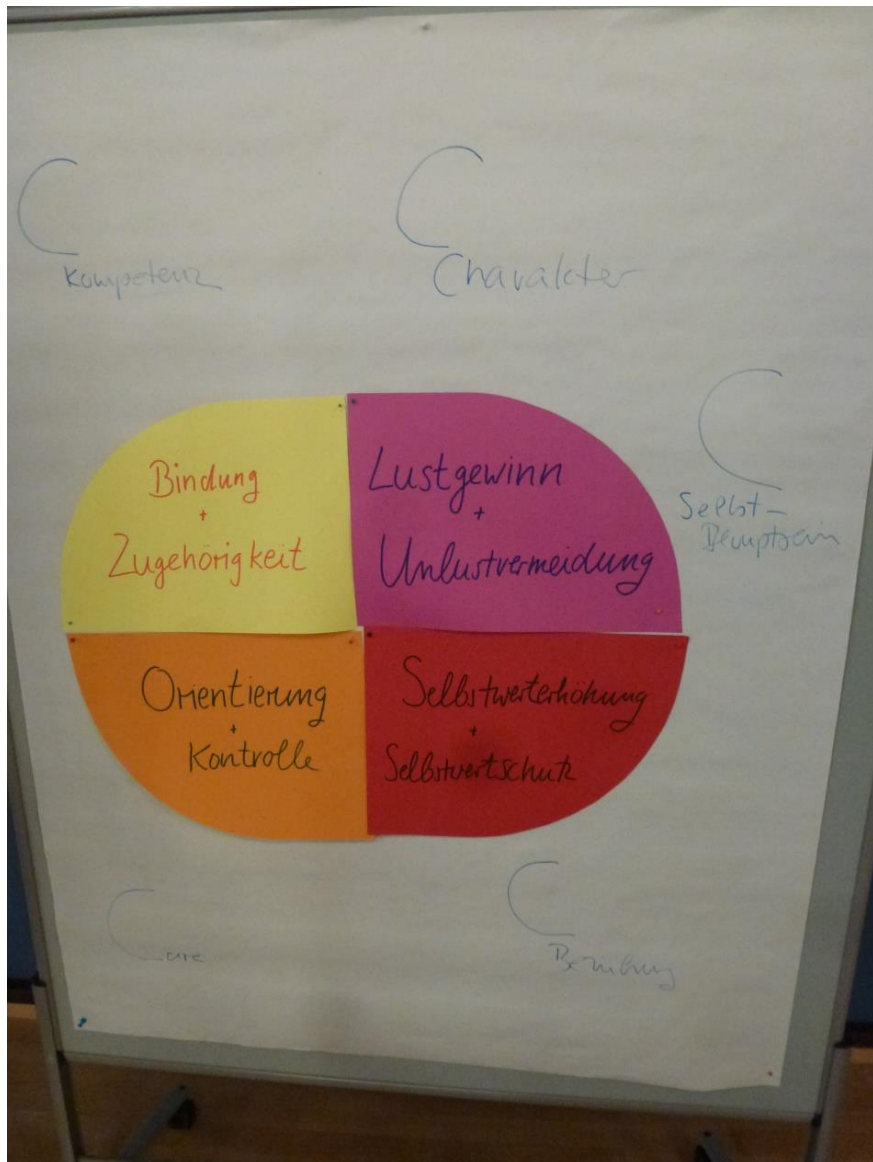 C
Kompetenz
C
Charakter
C
Selbst-
Bindung
+
Zugehörigkeit
Lustgewinn
+
Unlustvermeidung
Orientierung
+
Kontrolle
Selbstwerterhöhung
+
Selbstwertschutz
Care
C